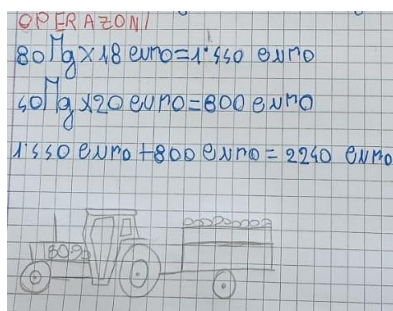 OPERAZONI
80 Mg x 18 euro = 1.440 euro
40 Mg x 20 euro = 800 euro
1.440 euro + 800 euro = 2240 euro